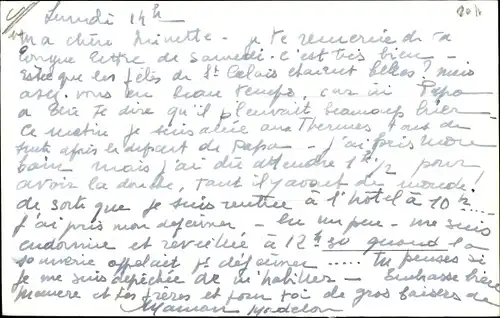 Lundi 14h
Ma chère Minette - je te remercie de ta
longue lettre de samedi. C'est très bien -
Est-ce que les fêtes de St Calais étaient belles? mais
avez-vous eu beau temps, car ici Papa
a dû te dire qu'il pleuvait beaucoup hier -
Ce matin je suis allée aux Thermes tout de
suite après le départ de Papa - j'ai pris mon
bain mais j'ai dû attendre 1h 1/2 pour
avoir la douche, tant il y avait du monde!
de sorte que je suis rentrée à l'hôtel à 10h ...
j'ai pris mon déjeuner - lu un peu - me suis
endormie et réveillée à 12h30 quand la
sonnerie appelait pr déjeuner ..... Tu penses si
je me suis dépêchée de m'habiller - Embrasse bien
Mémère et tes frères et pour toi de gros baisers de
Maman Madelon